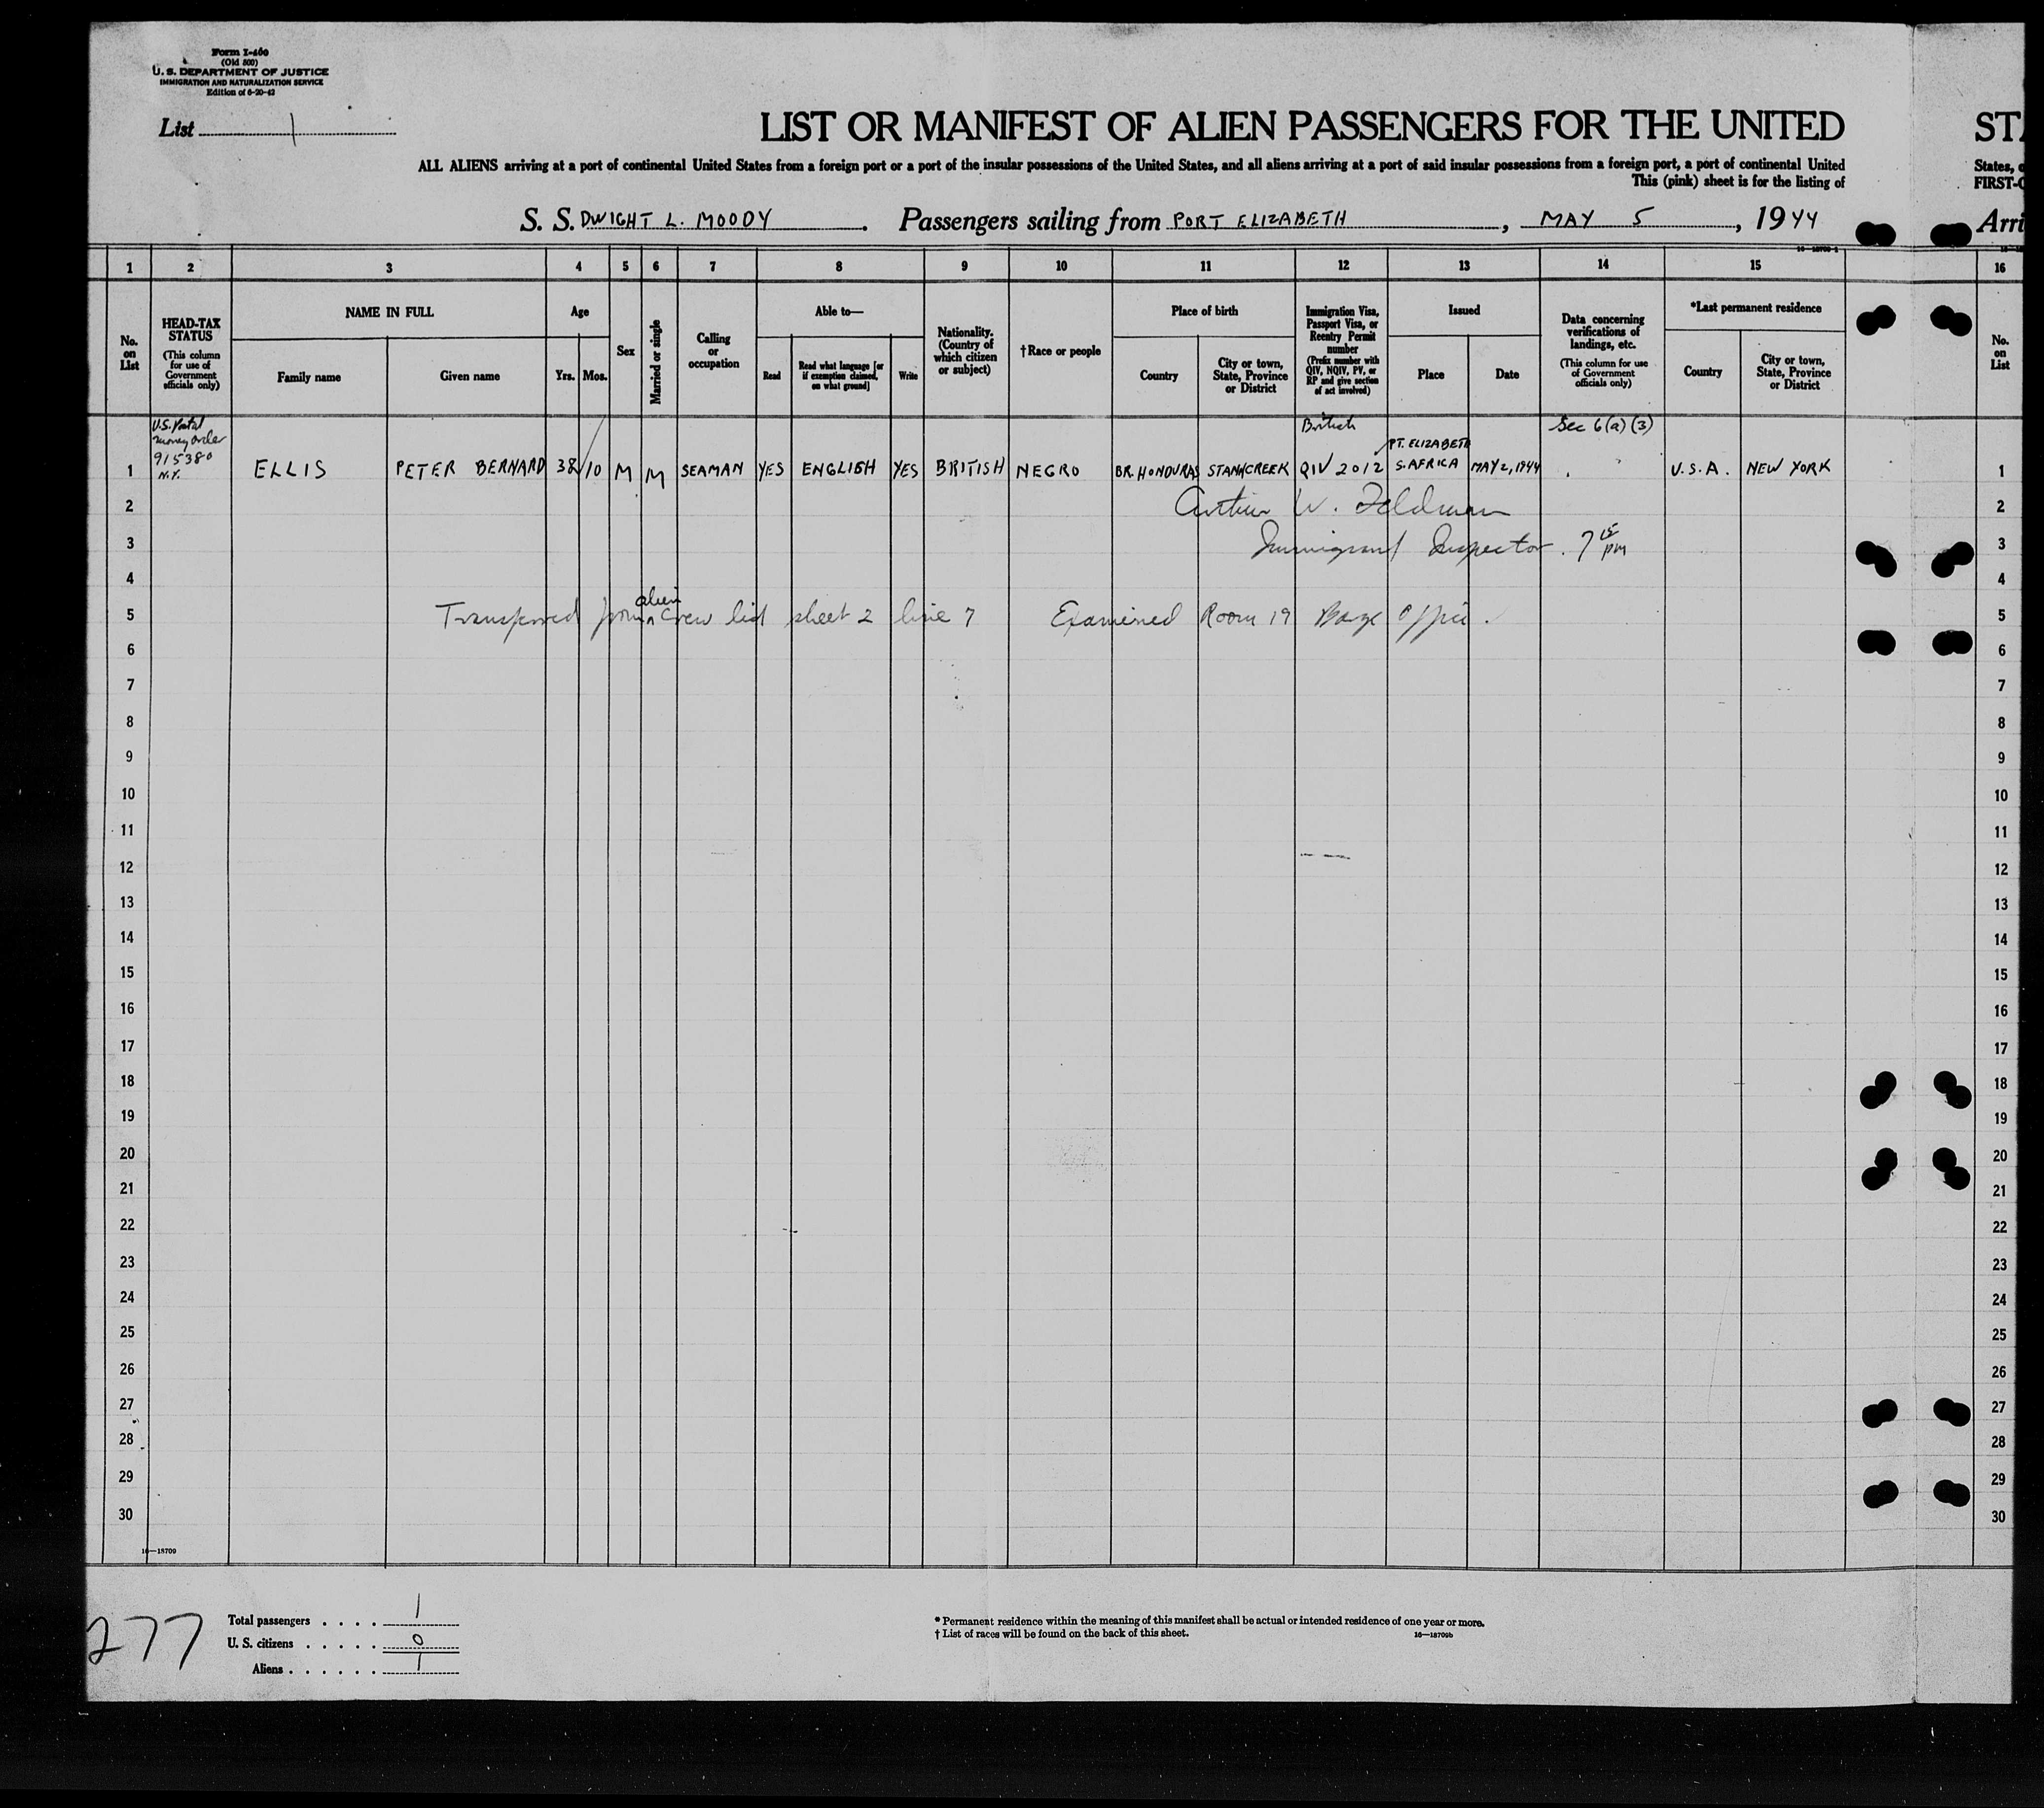 Form I-460
(Old 500)
U. S. DEPARTMENT OF JUSTICE
IMMIGRATION AND NATURALIZATION SERVICE
Edition of 6-20-42
List 1
LIST OR MANIFEST OF ALIEN PASSENGERS FOR THE UNITED
ALL ALIENS arriving at a port of continental United States from a foreign port or a port of the insular possessions of the United States, and all aliens arriving at a port of said insular possessions from a foreign port, a port of continental United
This (pink) sheet is for the listing of
ST
States,
FIRST-C
S. S. DWIGHT L. MOODY. Passengers sailing from PORT ELIZABETH, MAY 5, 1944
Arri
1 2 3 4 5 6 7 8 9 10 11 12 13 14 15 16
No. on List
HEAD-TAX STATUS
(This column for use of Government officials only)
NAME IN FULL
Family name
Given name
Age
Yrs. Mos.
Sex
Married or single
Calling or occupation
Able to—
Read
Read what language [or if exemption claimed, on what ground]
Write
Nationality. (Country of which citizen or subject)
†Race or people
Place of birth
Country
City or town, State, Province or District
Immigration Visa, Passport Visa, or Reentry Permit number
(Prefix number with QIV, NQIV, PV, or RP and give section of act involved)
Issued
Place
Date
Data concerning verifications of landings, etc.
(This column for use of Government officials only)
*Last permanent residence
Country
City or town, State, Province or District
No. on List
U.S. Postal money order 915380 N.Y.
British
Sec 6(a)(3)
1 ELLIS PETER BERNARD 38 10 M M SEAMAN YES ENGLISH YES BRITISH NEGRO BR. HONDURAS STANNCREEK QIV 2012 PT. ELIZABETH S. AFRICA MAY 2, 1944 U.S.A. NEW YORK 1
2 Arthur W. Feldman 2
3 Immigrant Inspector. 7 15 pm 3
4 4
5 Transferred from alien crew list sheet 2 line 7 Examined Room 19 Barge Office. 5
6 6
7 7
8 8
9 9
10 10
11 11
12 12
13 13
14 14
15 15
16 16
17 17
18 18
19 19
20 20
21 21
22 22
23 23
24 24
25 25
26 26
27 27
28 28
29 29
30 30
16—18709
277
Total passengers . . . . 1
U. S. citizens . . . . . 0
Aliens . . . . . . 1
* Permanent residence within the meaning of this manifest shall be actual or intended residence of one year or more.
† List of races will be found on the back of this sheet.
16—18709b